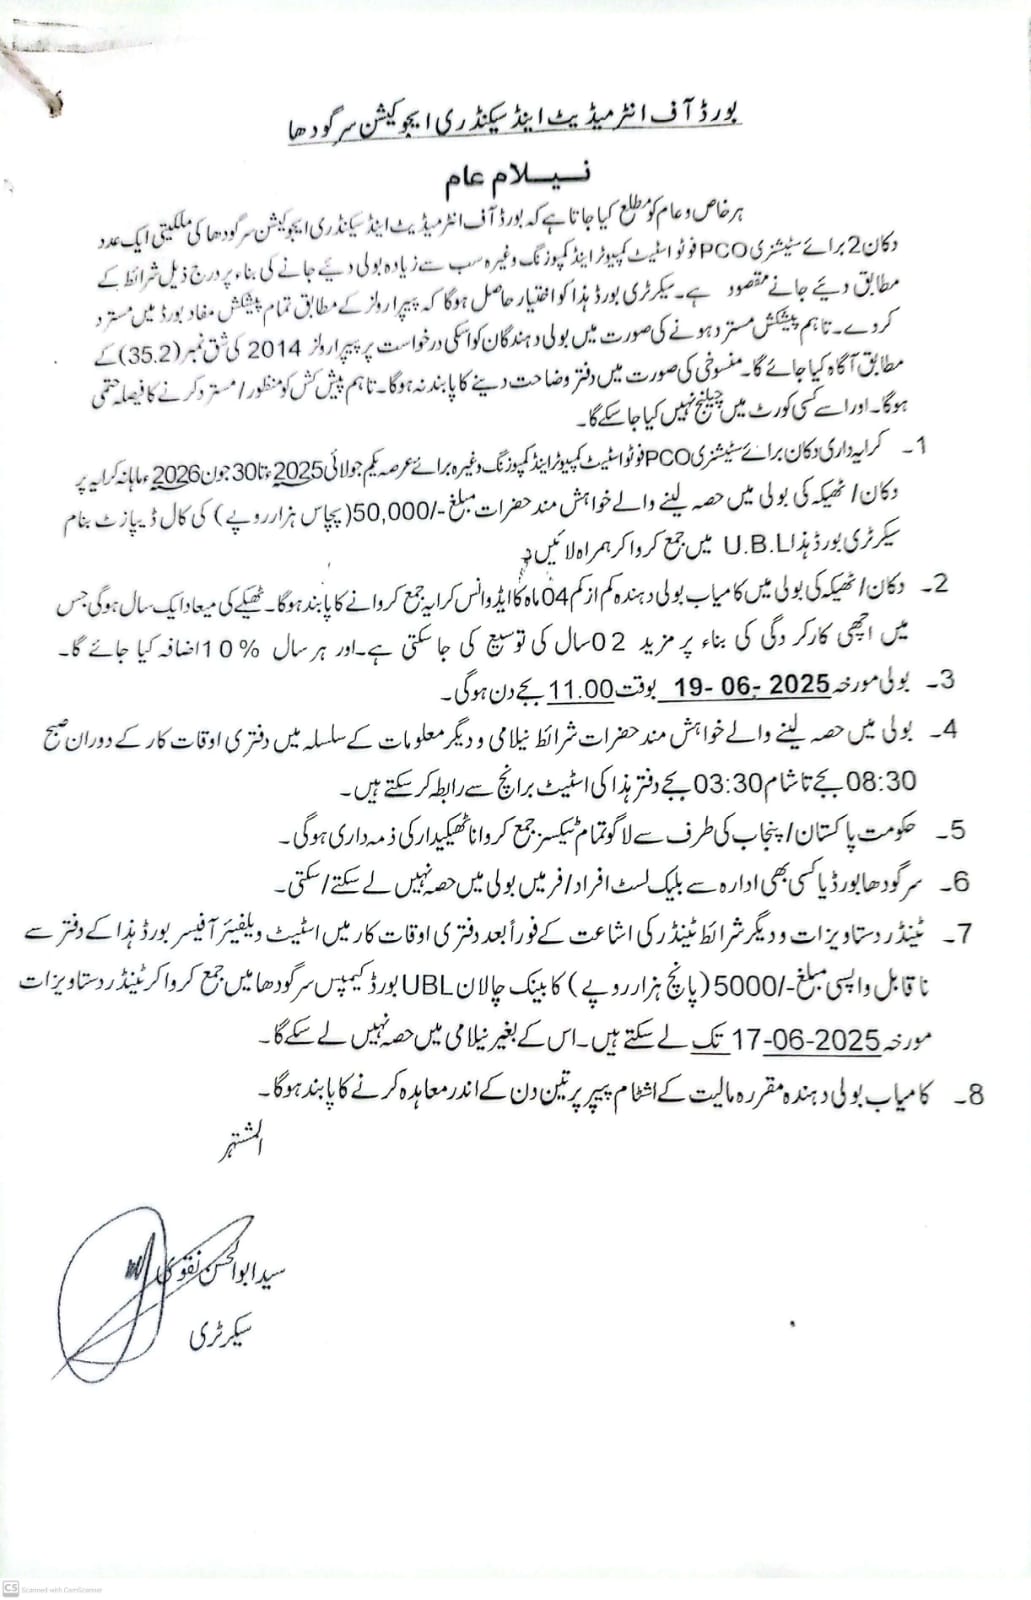 بورڈ آف انٹرمیڈیٹ اینڈ سیکنڈری ایجوکیشن سرگودھا
نیلام عام
ہر خاص و عام کو مطلع کیا جاتا ہے کہ بورڈ آف انٹرمیڈیٹ اینڈ سیکنڈری ایجوکیشن سرگودھا کی ملکیتی ایک عدد
دکان 2 برائے سٹیشنری PCO فوٹو اسٹیٹ کمپیوٹر اینڈ کمپوزنگ وغیرہ سب سے زیادہ بولی دیئے جانے کی بناء پر درج ذیل شرائط کے
مطابق دیئے جانے مقصود ہے۔ سیکرٹری بورڈ ہذا کو اختیار حاصل ہوگا کہ پیپرا رولز کے مطابق تمام پیشکش مفاد بورڈ میں مسترد
کر دے۔ تاہم پیشکش مسترد ہونے کی صورت میں بولی دہندگان کو اسکی درخواست پر پیپرا رولز 2014 کی شق نمبر (35.2) کے
مطابق آگاہ کیا جائے گا۔ منسوخی کی صورت میں دفتر وضاحت دینے کا پابند نہ ہوگا۔ تاہم پیش کش کو منظور / مسترد کرنے کا فیصلہ حتمی
ہوگا۔ اور اسے کسی کورٹ میں چیلنج نہیں کیا جا سکے گا۔
1۔ کرایہ داری دکان برائے سٹیشنری PCO فوٹو اسٹیٹ کمپیوٹر اینڈ کمپوزنگ وغیرہ برائے عرصہ یکم جولائی 2025ء تا 30 جون 2026ء ماہانہ کرایہ پر
دکان / ٹھیکہ کی بولی میں حصہ لینے والے خواہش مند حضرات مبلغ -/50,000 (پچاس ہزار روپے) کی کال ڈیپازٹ بنام
سیکرٹری بورڈ ہذا U.B.L میں جمع کروا کر ہمراہ لائیں۔
2۔ دکان / ٹھیکہ کی بولی میں کامیاب بولی دہندہ کم از کم 04 ماہ کا ایڈوانس کرایہ جمع کروانے کا پابند ہوگا۔ ٹھیکے کی میعاد ایک سال ہوگی جس
میں اچھی کارکردگی کی بناء پر مزید 02 سال کی توسیع کی جا سکتی ہے۔ اور ہر سال %10 اضافہ کیا جائے گا۔
3۔ بولی مورخہ 19-06-2025 بوقت 11.00 بجے دن ہوگی۔
4۔ بولی میں حصہ لینے والے خواہش مند حضرات شرائط نیلامی و دیگر معلومات کے سلسلہ میں دفتری اوقات کار کے دوران صبح
08:30 بجے تا شام 03:30 بجے دفتر ہذا کی اسٹیٹ برانچ سے رابطہ کر سکتے ہیں۔
5۔ حکومت پاکستان / پنجاب کی طرف سے لاگو تمام ٹیکسز جمع کروانا ٹھیکیدار کی ذمہ داری ہوگی۔
6۔ سرگودھا بورڈ یا کسی بھی ادارہ سے بلیک لسٹ افراد / فرمیں بولی میں حصہ نہیں لے سکتے / سکتی۔
7۔ ٹینڈر دستاویزات و دیگر شرائط ٹینڈر کی اشاعت کے فوراً بعد دفتری اوقات کار میں اسٹیٹ ویلفیئر آفیسر بورڈ ہذا کے دفتر سے
ناقابل واپسی مبلغ -/5000 (پانچ ہزار روپے) کا بینک چالان UBL بورڈ کیمپس سرگودھا میں جمع کروا کر ٹینڈر دستاویزات
مورخہ 17-06-2025 تک لے سکتے ہیں۔ اس کے بغیر نیلامی میں حصہ نہیں لے سکے گا۔
8۔ کامیاب بولی دہندہ مقررہ مالیت کے اشٹام پیپر پر تین دن کے اندر معاہدہ کرنے کا پابند ہوگا۔
المشتہر
سید ابوالحسن نقوی
سیکرٹری
CS Scanned with CamScanner